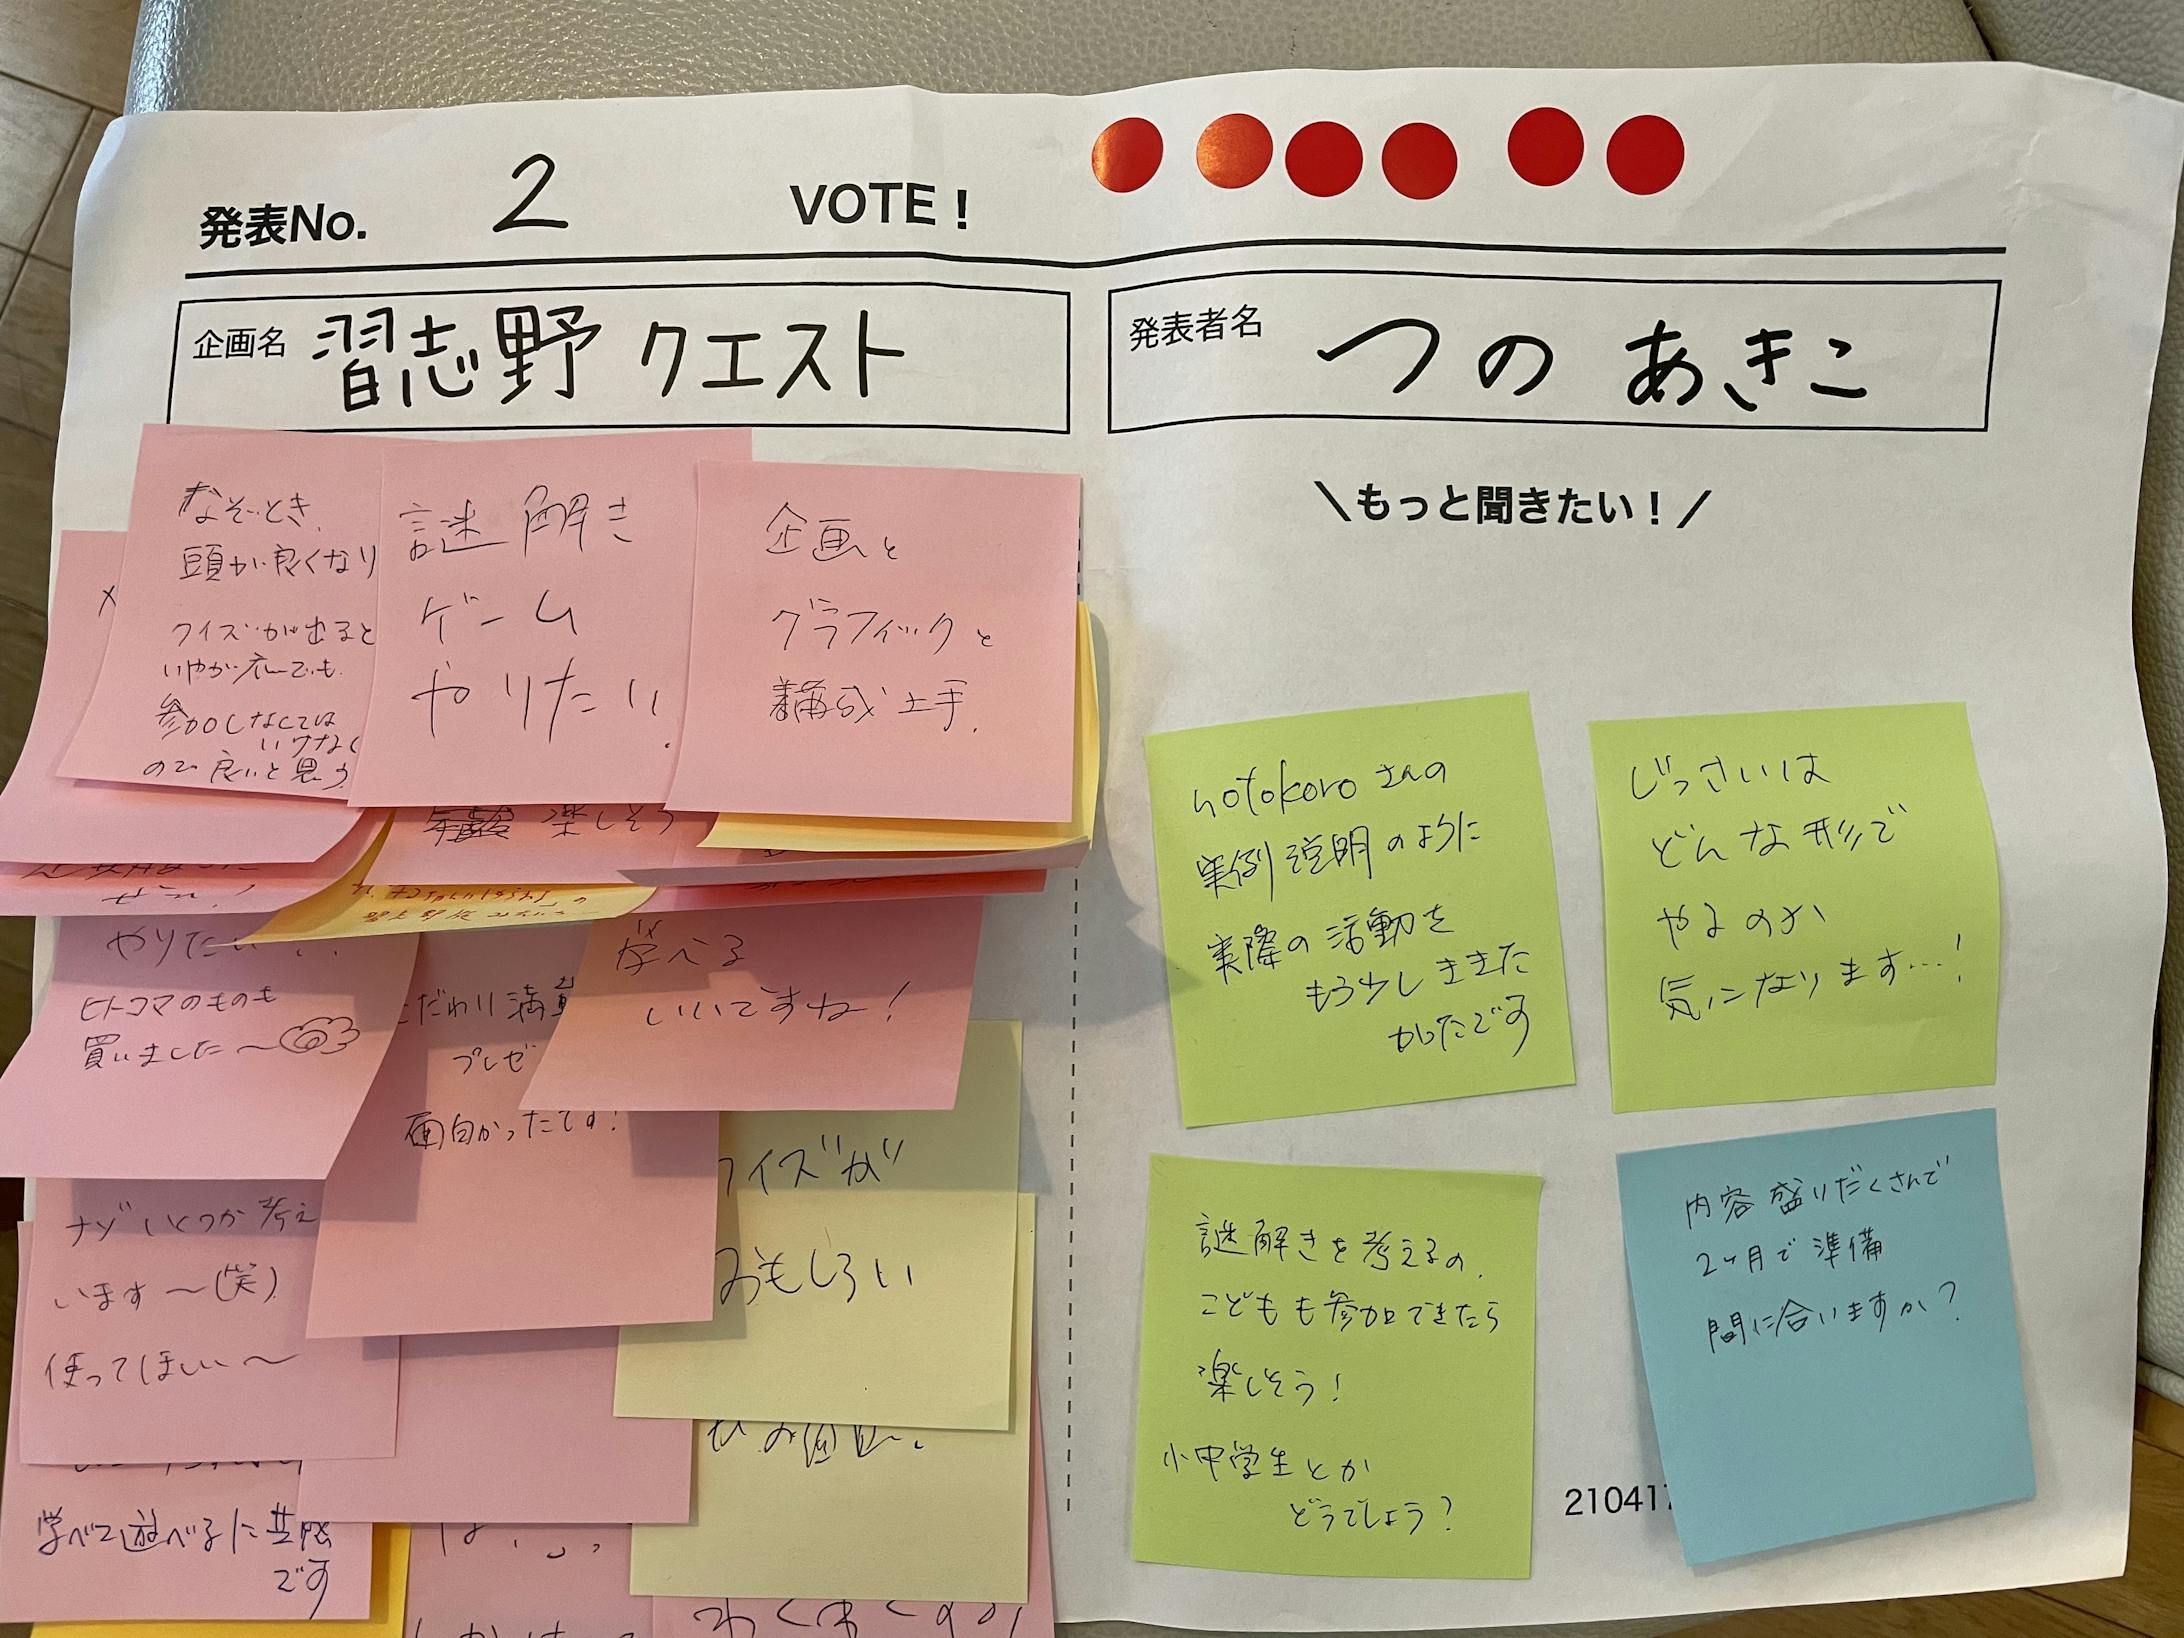 発表No. 2 VOTE!
企画名 習志野クエスト
発表者名 つの あきこ
なぞとき、
頭が良くなり
クイズが出ると
いやが応でも
参加しなくては
いけなく
ので良いと思う
謎解き
ゲーム
やりたい.
企画と
グラフィックと
構成上手.
楽しそう
やりたい
ヒトコマのものも
買いました〜
こだわり満載
プレゼ
面白かったです!
学べる
いいですね!
クイズが
おもしろい
ナゾいくつか考え
います〜(笑)
使ってほしい〜
学べて遊べるに共感
です
\もっと聞きたい!/
notokoroさんの
実例説明のように
実際の活動を
もう少しききた
かったです
じっさいは
どんな形で
やるのか
気になります…!
謎解きを考えるの、
こどもも参加できたら
楽しそう!
小中学生とか
どうでしょう?
内容盛りだくさんで
2ヶ月で準備
間に合いますか?
21041